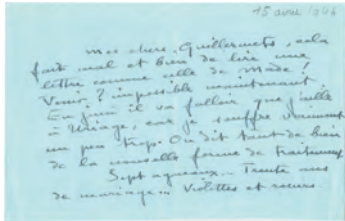 15 avril 1946
Mes chers Guillermets, cela
fait mal et bien de lire une
lettre comme celle de Made !
Venir ? impossible maintenant.
En juin il va falloir que j'aille
à Uriage, car je souffre vraiment
un peu trop. On dit tant de bien
de la nouvelle forme de traitement
Sept agneaux... Trente ans
de mariage... Violettes et